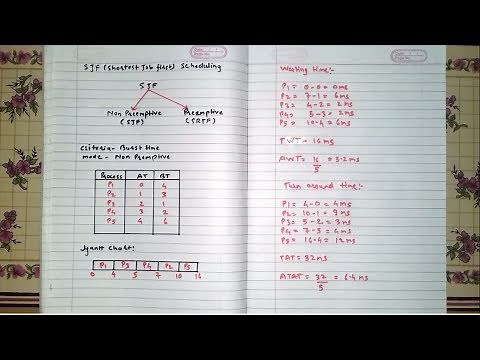 SJF (Shortest Job first) Scheduling
SJF
Non Preemptive
(SJF)
Preemptive
(SRTF)
Criteria - Burst time
mode - Non Preemptive
Process AT BT
P1 0 4
P2 1 3
P3 2 1
P4 3 2
P5 4 6
Gantt Chart:
P1 P3 P4 P2 P5
0 4 5 7 10 16
Waiting time:-
P1 = 0-0 = 0ms
P2 = 7-1 = 6ms
P3 = 4-2 = 2ms
P4 = 5-3 = 2ms
P5 = 10-4 = 6ms
TWT = 16ms
AWT = 16/5 = 3.2ms
Turn around time:-
P1 = 4-0 = 4ms
P2 = 10-1 = 9ms
P3 = 5-2 = 3ms
P4 = 7-3 = 4ms
P5 = 16-4 = 12ms
TAT = 32ms
ATAT = 32/5 = 6.4ms